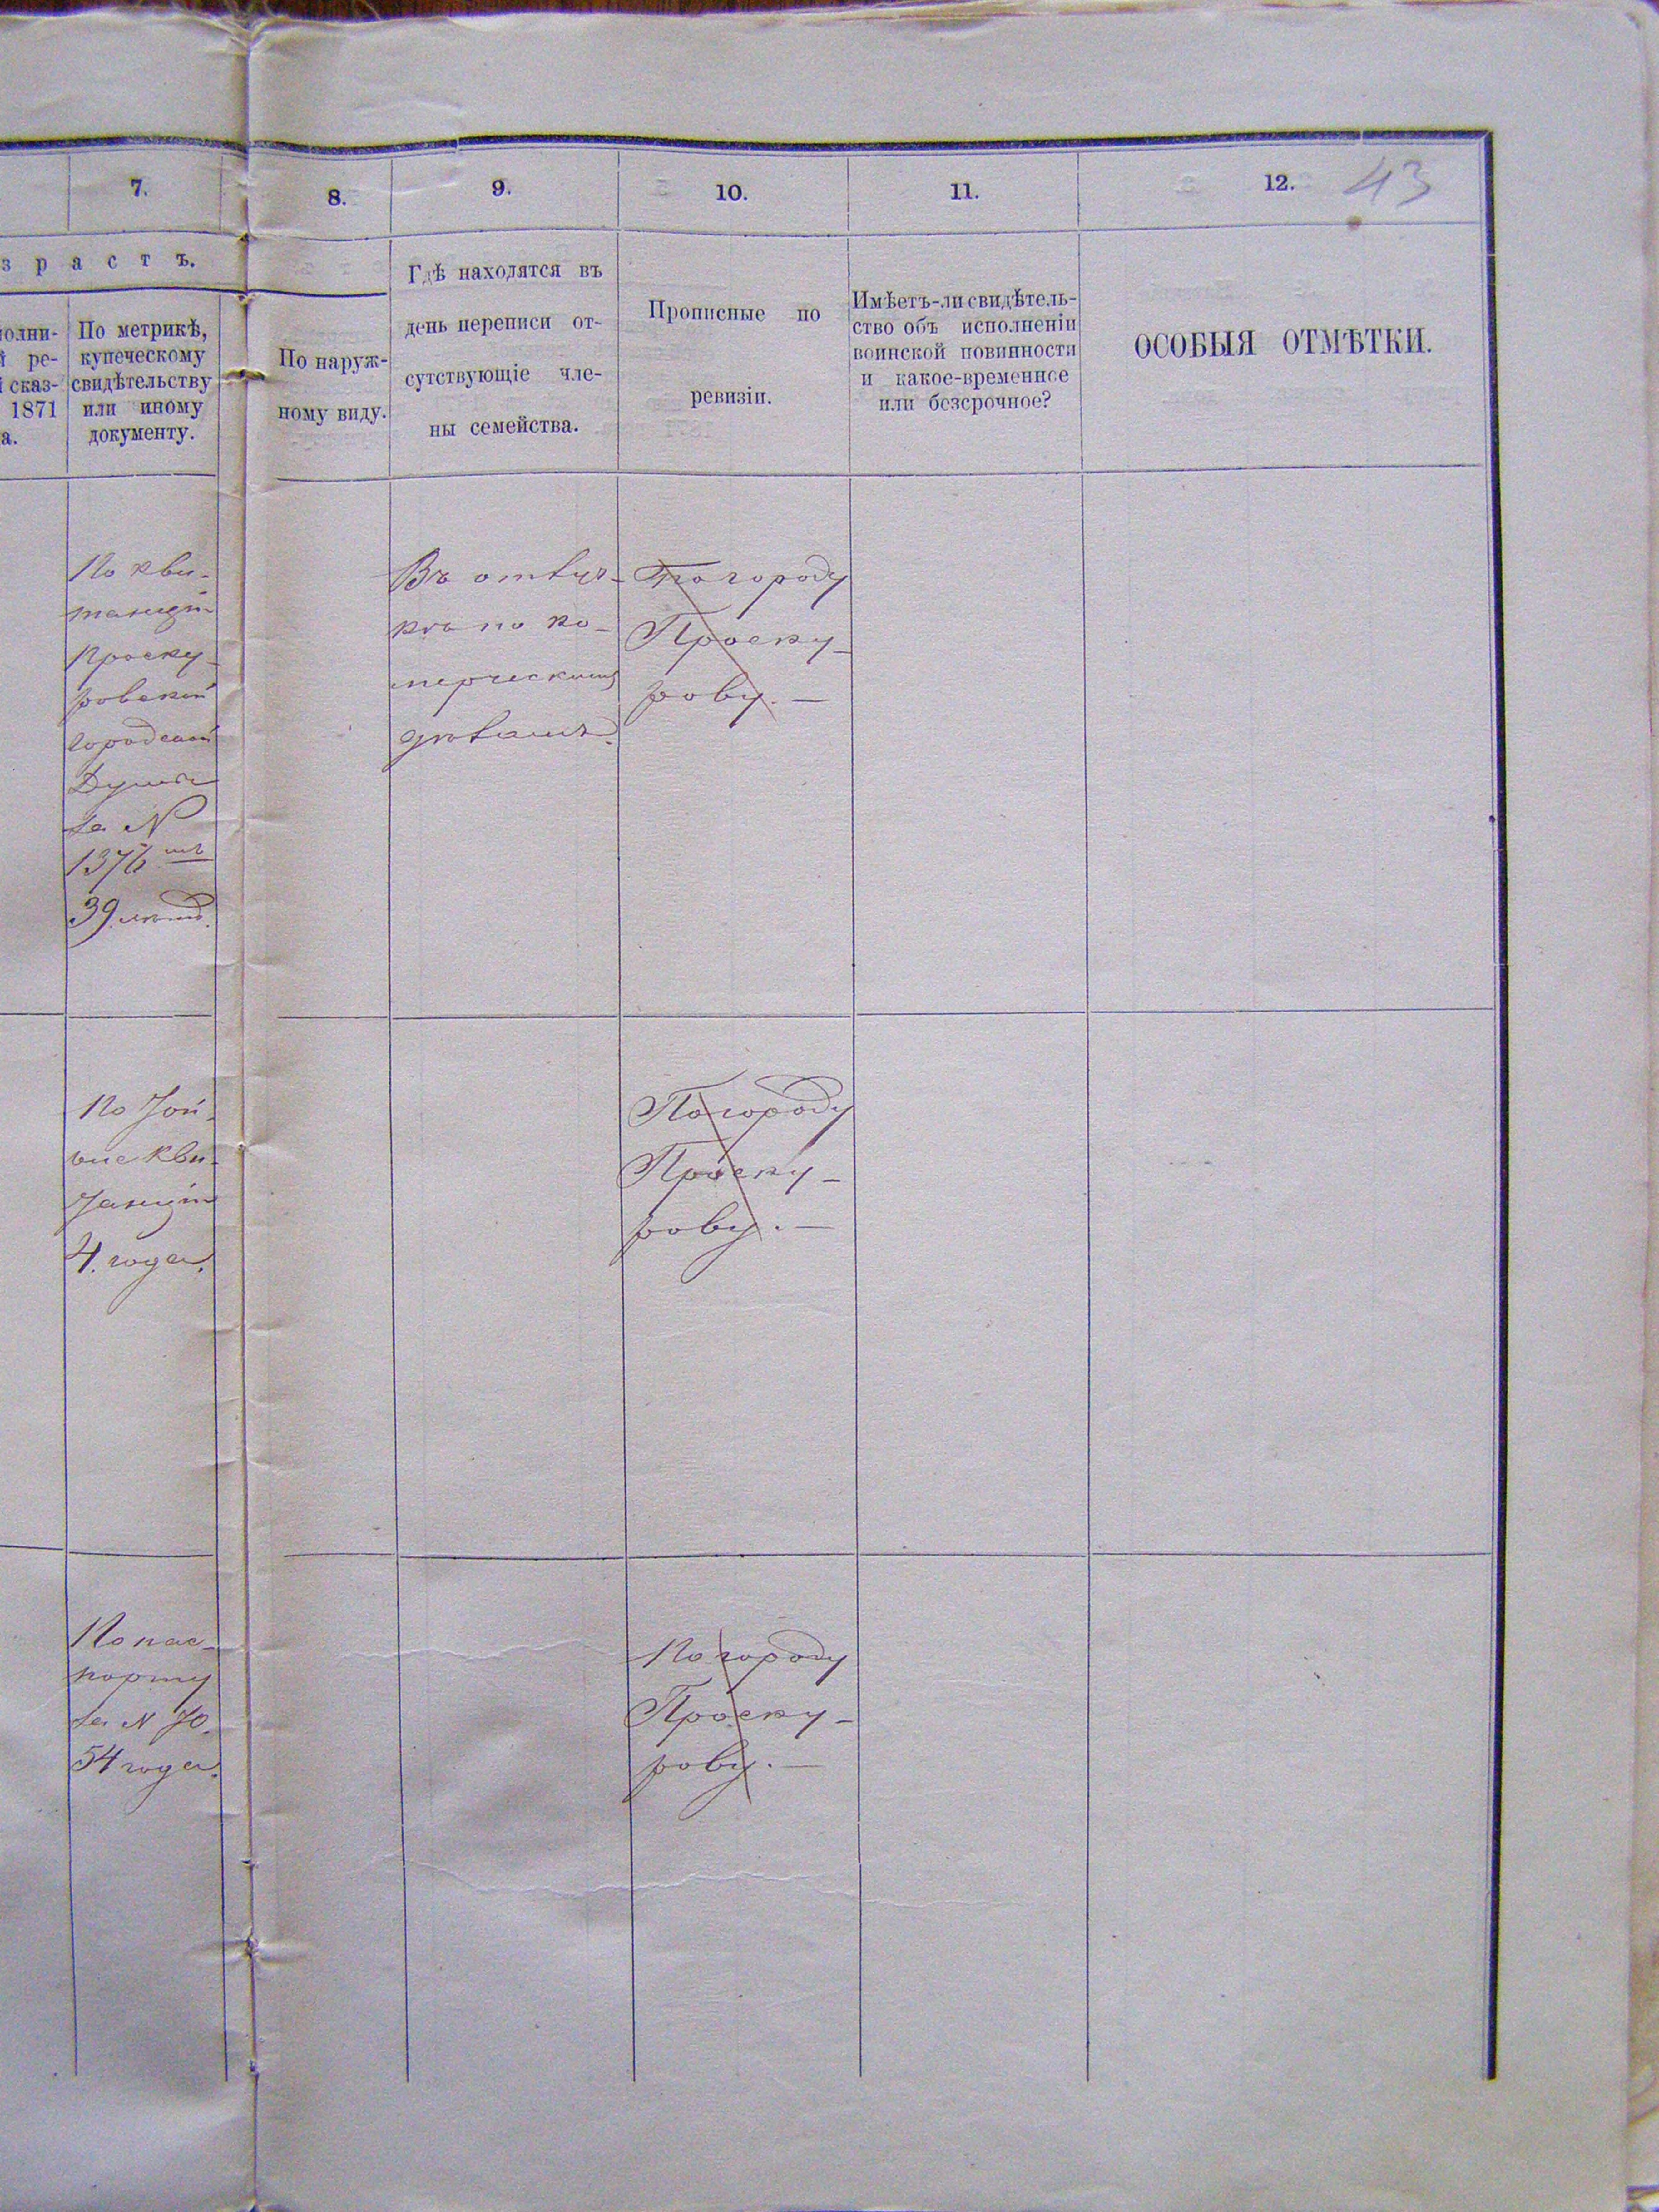 7.
8.
9.
10.
11.
12.
43
зрастъ.
полни-
й ре-
й сказ-
1871
а.
По метрикѣ,
купеческому
свидѣтельству
или иному
документу.
По наруж-
ному виду.
Гдѣ находятся въ
день переписи от-
сутствующіе чле-
ны семейства.
Прописные по
ревизіи.
Имѣетъ-ли свидѣтель-
ство объ исполненіи
воинской повинности
и какое-временное
или безсрочное?
ОСОБЫЯ ОТМѢТКИ.
По кви-
танціи
Проску-
ровской
городской
Думы
за N
1376
39 лѣтъ.
Въ отлуч-
кѣ по ко-
мерческимъ
дѣламъ.
По городу
Проску-
рову. —
По той
же кви-
танціи
4 года.
По городу
Проску-
рову. —
По пас-
порту
за N 70.
54 года.
По городу
Проску-
рову. —